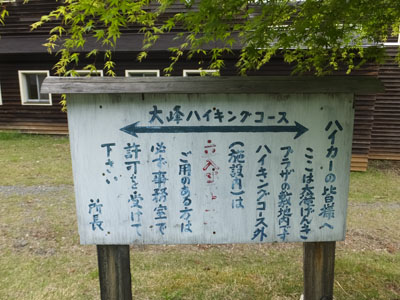 大峰ハイキングコース
ハイカーの皆様へ
ここは大滝げんき
プラザの敷地内です
ハイキングコース外
(施設内)は
ご用のある方は
必ず事務室で
許可を受けて
下さい
所長